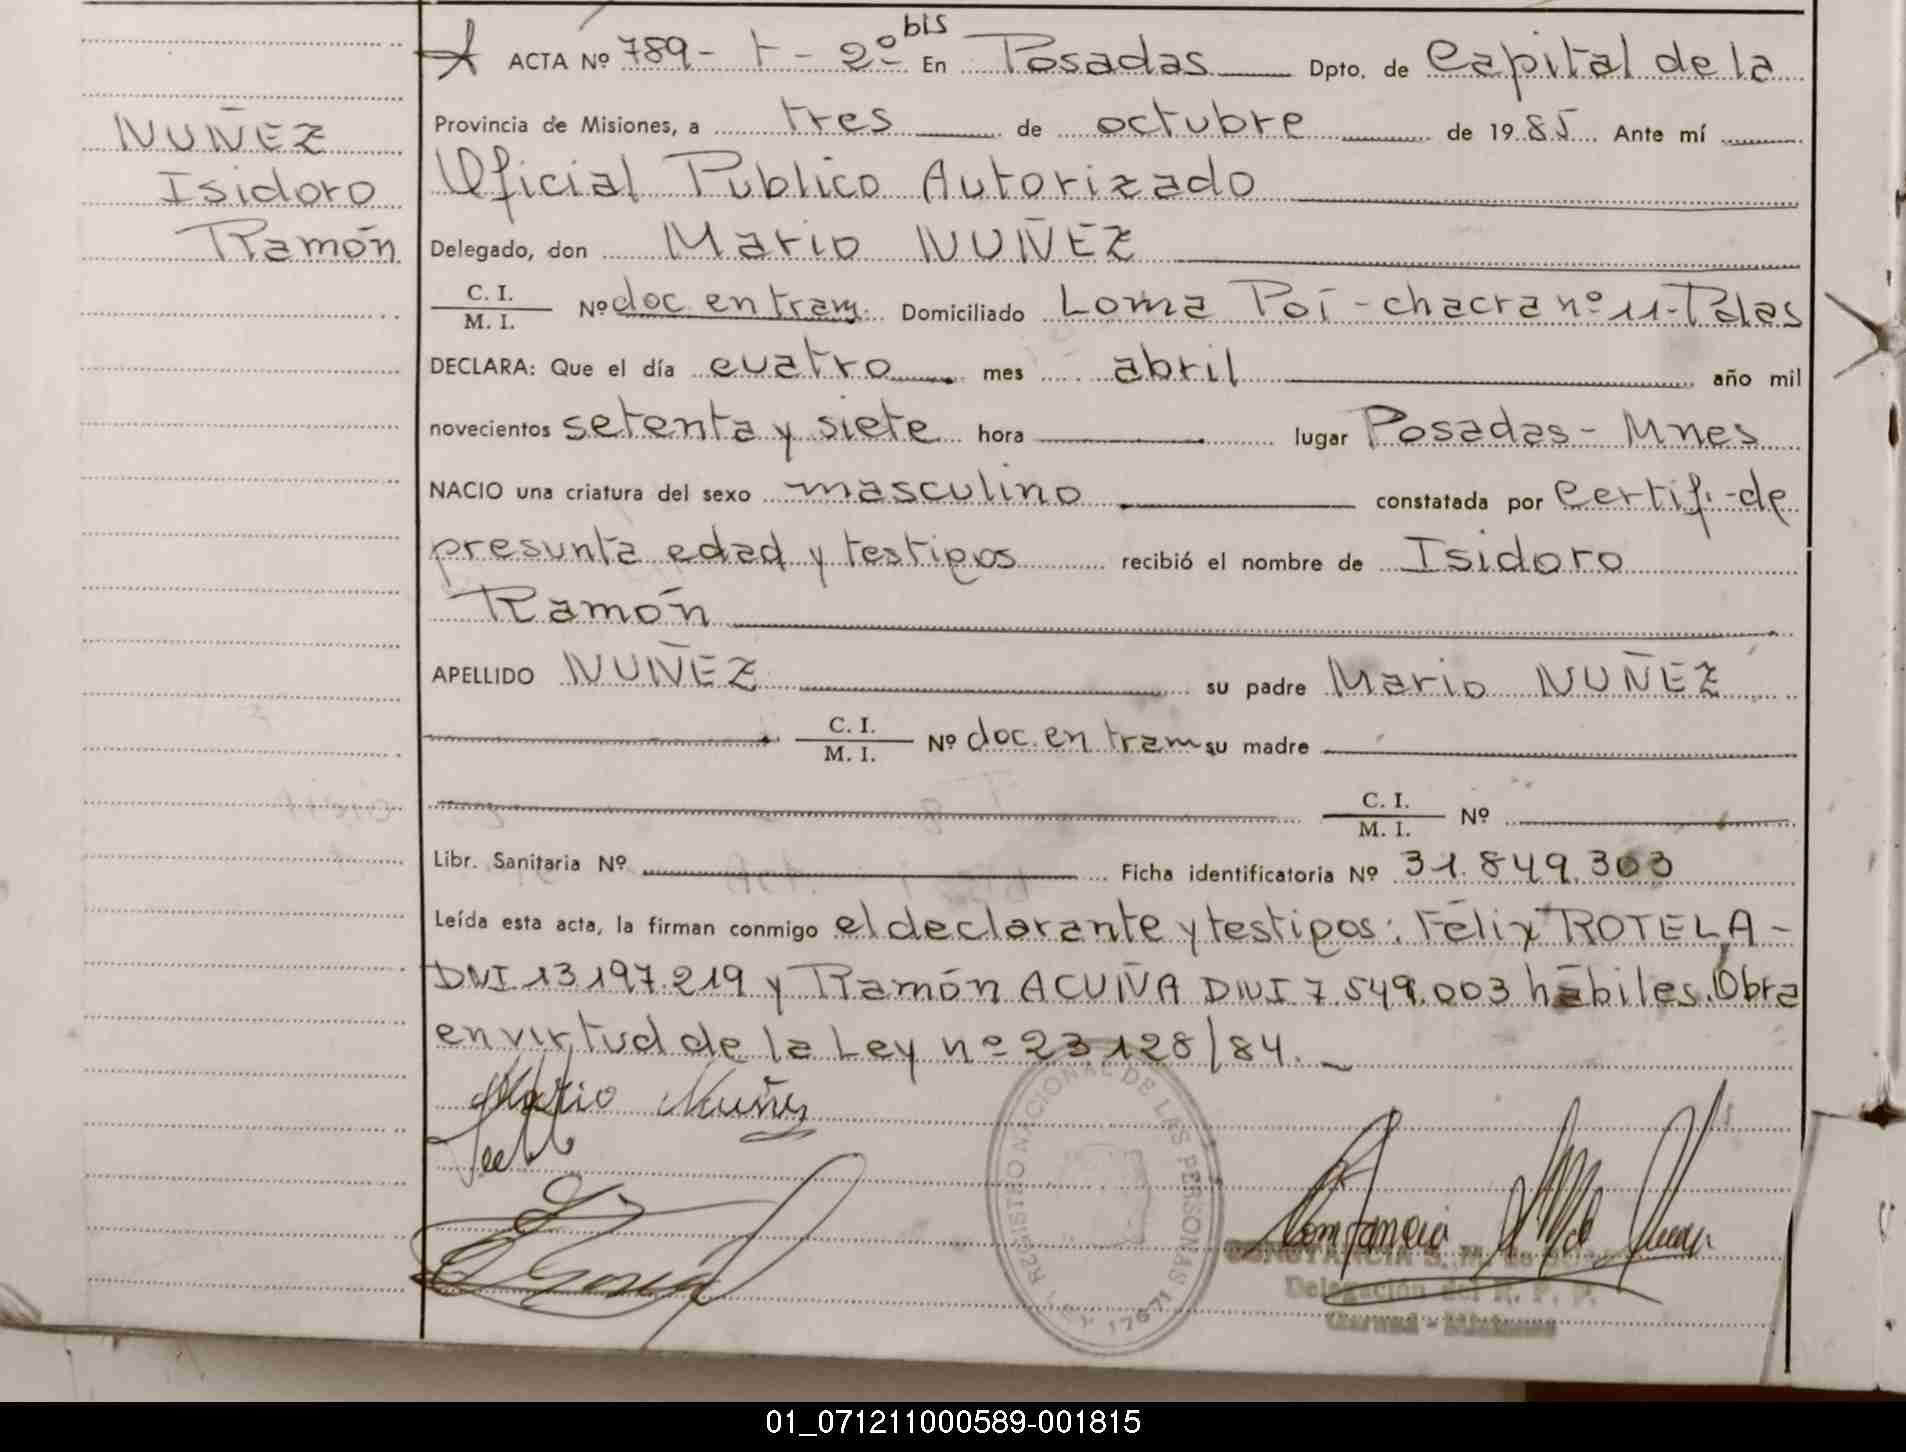 NUÑEZ
Isidoro
Ramón
ACTA Nº 789 - T - 2º bis En Posadas Dpto. de Capital de la
Provincia de Misiones, a tres de octubre de 1985 Ante mí
Oficial Publico Autorizado
Delegado, don Mario NUÑEZ
C. I. / M. I. Nº doc. en tram. Domiciliado Loma Poí - chacra nº 11 - Pdas
DECLARA: Que el día cuatro mes abril año mil
novecientos setenta y siete hora lugar Posadas - Mnes
NACIO una criatura del sexo masculino constatada por Certif. de
presunta edad y testigos recibió el nombre de Isidoro
Ramón
APELLIDO NUÑEZ su padre Mario NUÑEZ
C. I. / M. I. Nº doc. en tram su madre
C. I. / M. I. Nº
Libr. Sanitaria Nº Ficha identificatoria Nº 31.849.303
Leída esta acta, la firman conmigo el declarante y testigos: Félix ROTELA -
DNI 13197.219 y Ramón ACUÑA DNI 7.549.003 hábiles. Obra
en virtud de la Ley nº 23128/84.
Mario Nuñez
REGISTRO NACIONAL DE LAS PERSONAS
LEY 17671
CONSTANCIA S. M. de
Delegación del R. P. P.
01_071211000589-001815